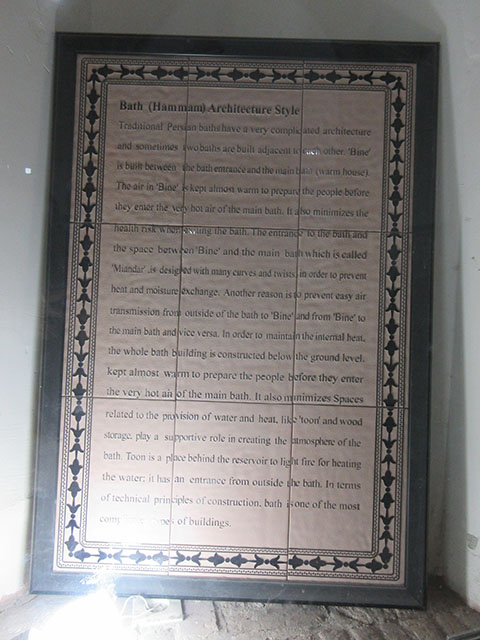 Bath (Hammam) Architecture Style
Traditional Persian baths have a very complicated architecture
and sometimes two baths are built adjacent to each other. 'Bine'
is built between the bath entrance and the main bath (warm house).
The air in 'Bine' is kept almost warm to prepare the people before
they enter the very hot air of the main bath. It also minimizes the
health risk when leaving the bath. The entrance to the bath and
the space between 'Bine' and the main bath which is called
'Miandar' .is designed with many curves and twists, in order to prevent
heat and moisture exchange. Another reason is to prevent easy air
transmission from outside of the bath to 'Bine' and from 'Bine' to
the main bath and vice versa. In order to maintain the internal heat,
the whole bath building is constructed below the ground level.
kept almost warm to prepare the people before they enter
the very hot air of the main bath. It also minimizes Spaces
related to the provision of water and heat, like 'toon' and wood
storage, play a supportive role in creating the atmosphere of the
bath. Toon is a place behind the reservoir to light fire for heating
the water; it has an entrance from outside the bath. In terms
of technical principles of construction, bath is one of the most
types of buildings.